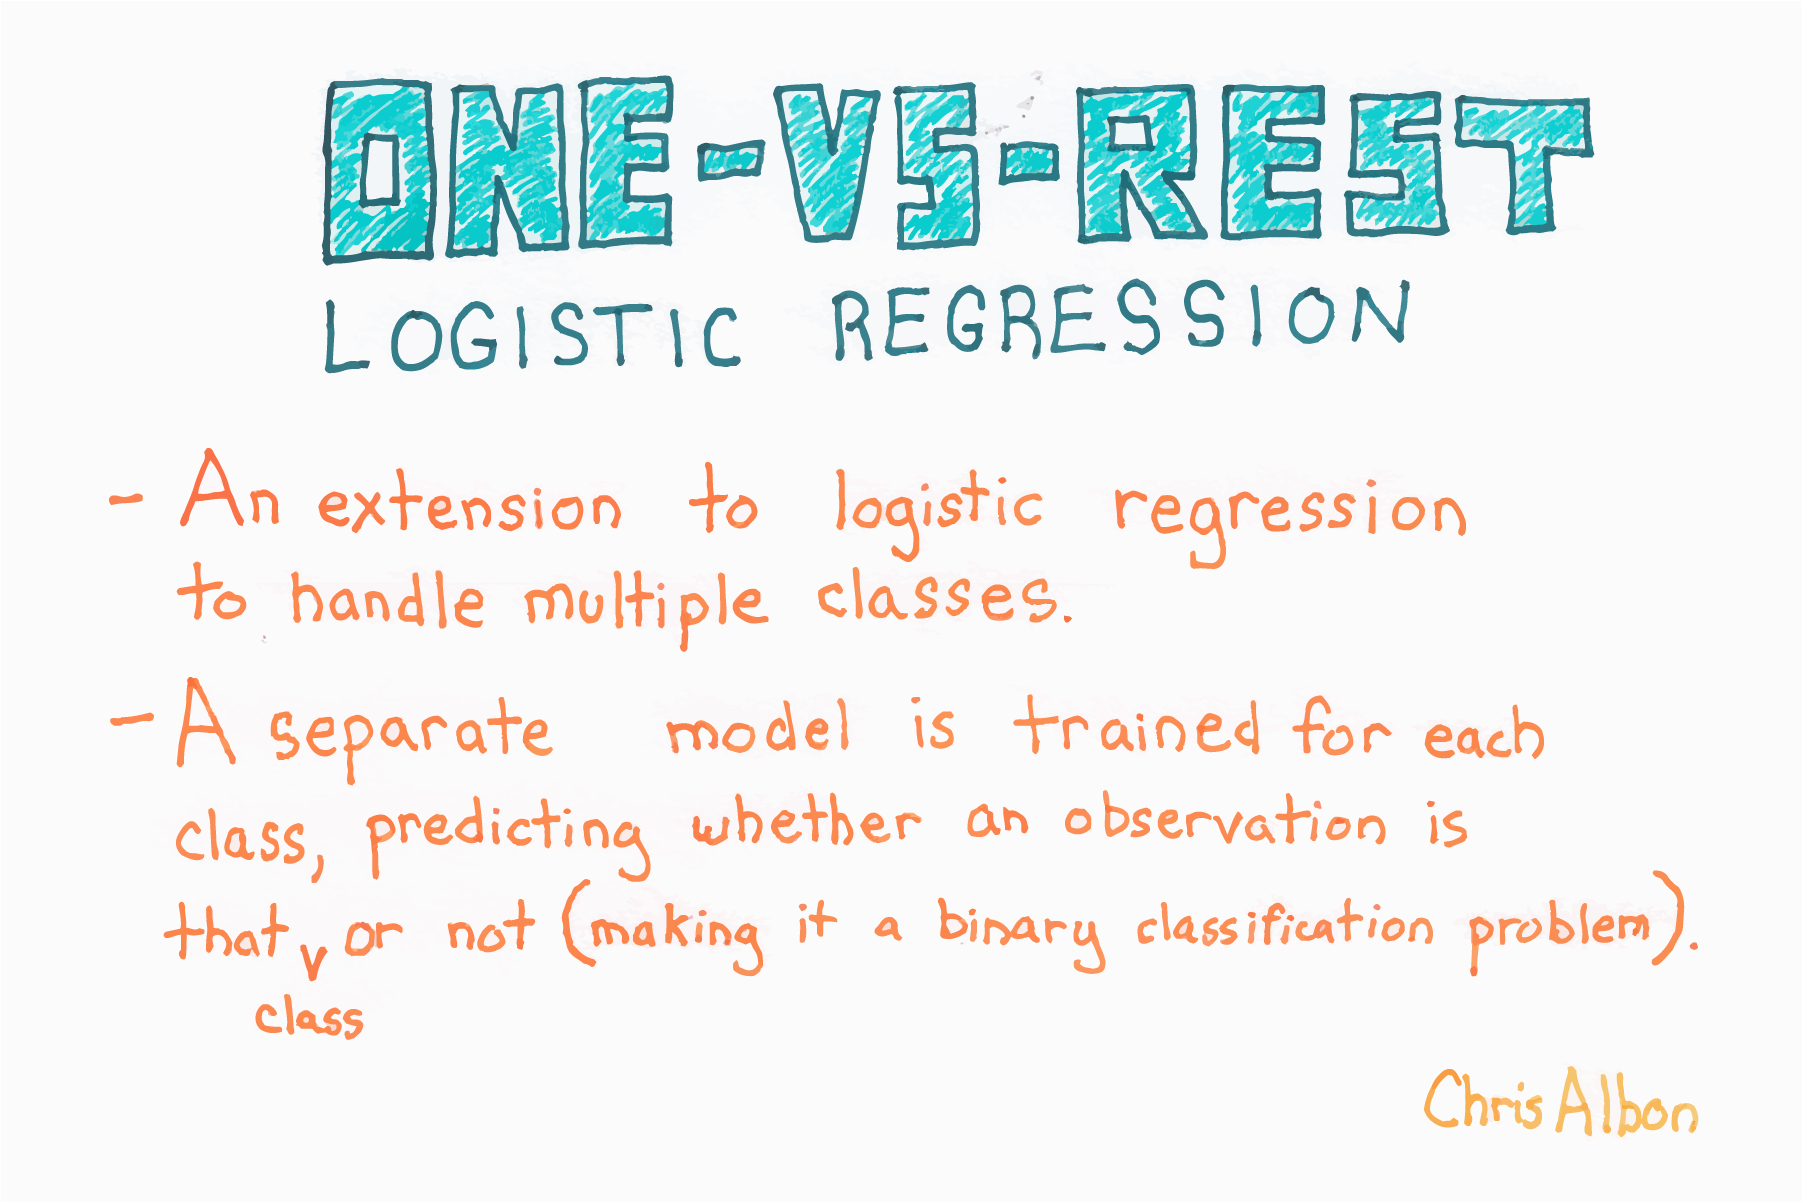 ONE-VS-REST
LOGISTIC REGRESSION
- An extension to logistic regression
to handle multiple classes.
- A separate model is trained for each
class, predicting whether an observation is
that class or not (making it a binary classification problem).
Chris Albon